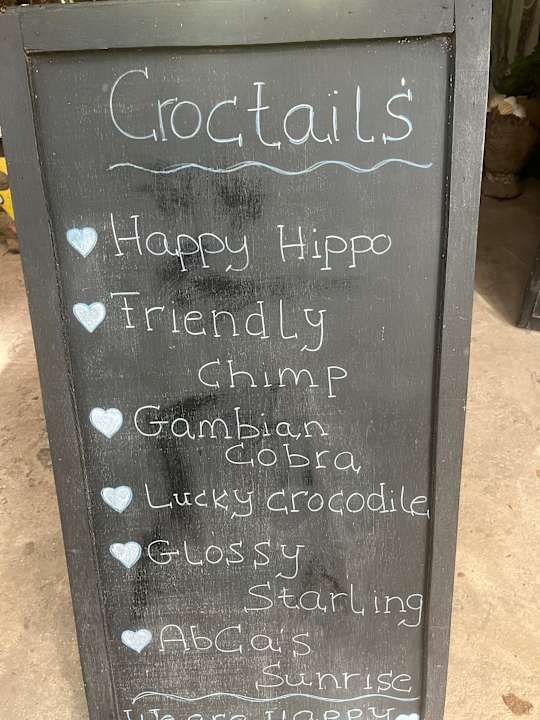 Croctails
Happy Hippo
Friendly
Chimp
Gambian
Cobra
Lucky crocodile
Glossy
Starling
AbCa's
Sunrise
We are Happy